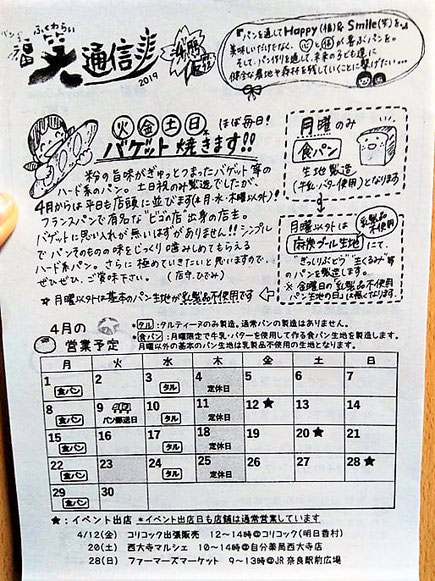 ふくわらい
通信
2019
『パンを通してHappy(福)& Smile(笑)を。』
美味しいだけでなく、心と体が喜ぶパンを。
そして、パン作りを通して、未来の子ども達に
健全な農地や森林を残していくことに繋げたい…
火金土日 ほぼ毎日!
バゲット焼きます!!
粉の旨味がぎゅっとつまったバゲット等の
ハード系のパン。土日祝のみ製造でしたが、
4月からは平日も店頭に並びます(月・水・木曜以外)!
フランスパンで有名な"ビゴの店"出身の店主。
バゲットに思い入れが無いはずがありません!!シンプルで
パンそのものの味をじっくり噛みしめてもらえる
ハード系パン。さらに極めていきたいと思いますので、
ぜひぜひ、ご賞味下さい。
(店守.ひでみ)
*月曜以外は基本のパン生地が乳製品不使用です
月曜のみ
食パン
生地製造
(牛乳・バター使用)となります
月曜以外は乳製品不使用
にて、
"ぎっしりぶどう" "生くるみ"等
のパンを製造します。
※金曜日の「乳製品不使用
パン生地の日」は無くなります。
4月の
営業予定
*タル:タルティーヌのみ製造。通常パンの製造はありません。
*食パン:月曜限定で牛乳・バターを使用して作る食パン生地を製造します。
月曜以外の基本のパン生地は乳製品不使用の生地となります。
月 火 水 木 金 土 日
1 食パン 2 3 タル 4 定休日 5 6 7
8 食パン 9 パン郵送日 10 タル 11 定休日 12★ 13 14
15 食パン 16 17 タル 18 定休日 19 20★ 21
22 食パン 23 24 タル 25 定休日 26 27 28★
29 食パン 30
★:イベント出店 *イベント出店日も店舗は通常営業しています
4/12(金) コリコック出張販売 12~14時@コリコック(明日香村)
20(土) 西大寺マルシェ 10~14時@自分薬局西大寺店
28(日) ファーマーズマーケット 9~13時@JR奈良駅前広場